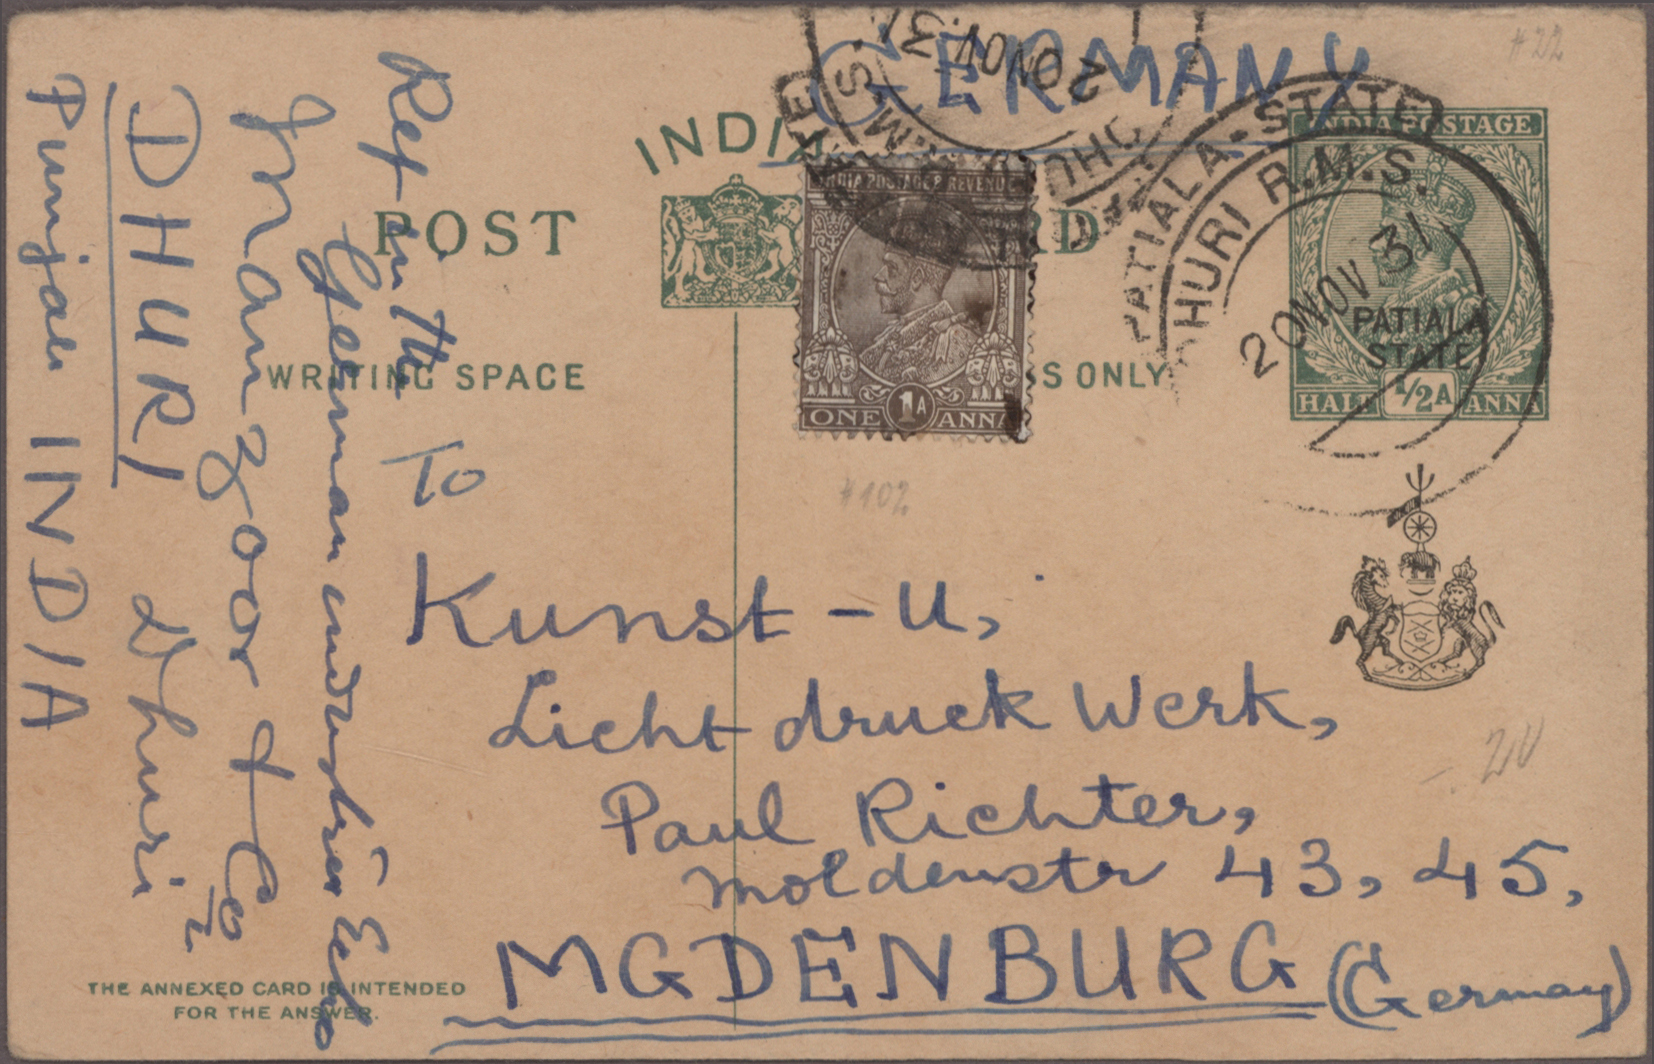 GERMANY
#22
INDIA
POST CARD
WRITING SPACE
S ONLY
INDIA POSTAGE & REVENUE
ONE 1A ANNA
INDIA POSTAGE
PATIALA STATE
HALF 1/2A ANNA
PATIALA-STATE
DHURI R.M.S.
20 NOV 31
DHURI R.M.S.
20 NOV. 31
#102
To
Kunst - U,
Licht druck Werk,
Paul Richter,
Moldenstr 43, 45,
MGDENBURG (Germany)
20
Ref in the
German industries Echo
Manzoor & Co
Dhuri
DHURI
Punjab INDIA
THE ANNEXED CARD IS INTENDED
FOR THE ANSWER.